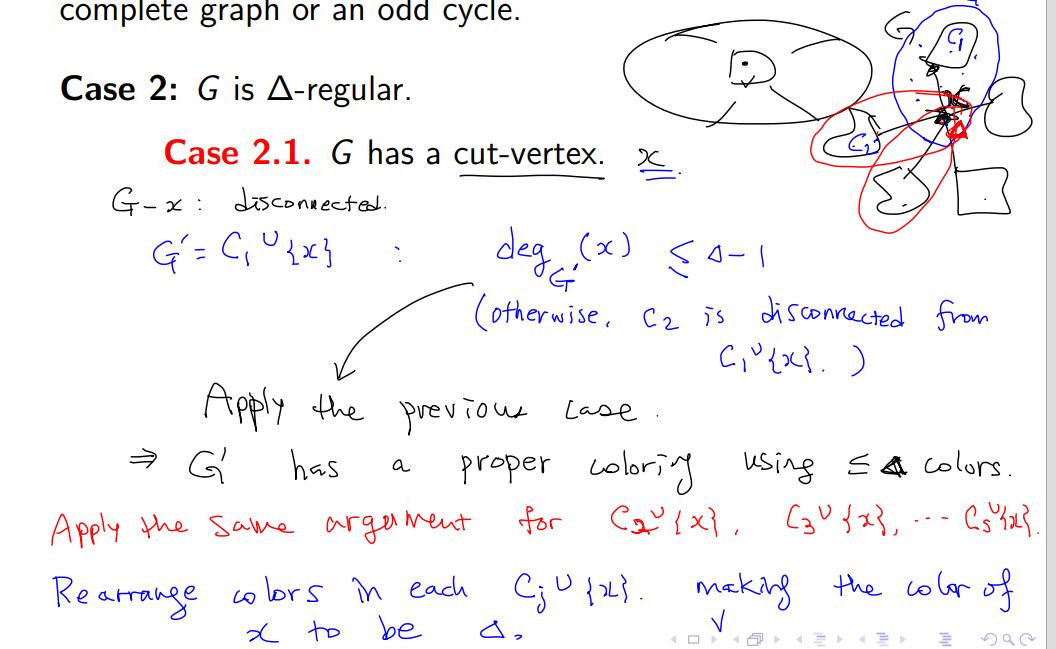 complete graph or an odd cycle.
Case 2: G is Δ-regular.
Case 2.1. G has a cut-vertex. x
G - x : disconnected.
G' = C₁ ∪ {x} : deg_G'(x) ≤ Δ-1
(otherwise, C₂ is disconnected from
C₁ ∪ {x}. )
Apply the previous case.
⇒ G' has a proper coloring using ≤ Δ colors.
Apply the same argument for C₂ ∪ {x}, C₃ ∪ {x}, ... C₅ ∪ {x}.
Rearrange colors in each Cⱼ ∪ {x}. making the color of
x to be Δ.
G
C₁
C₂